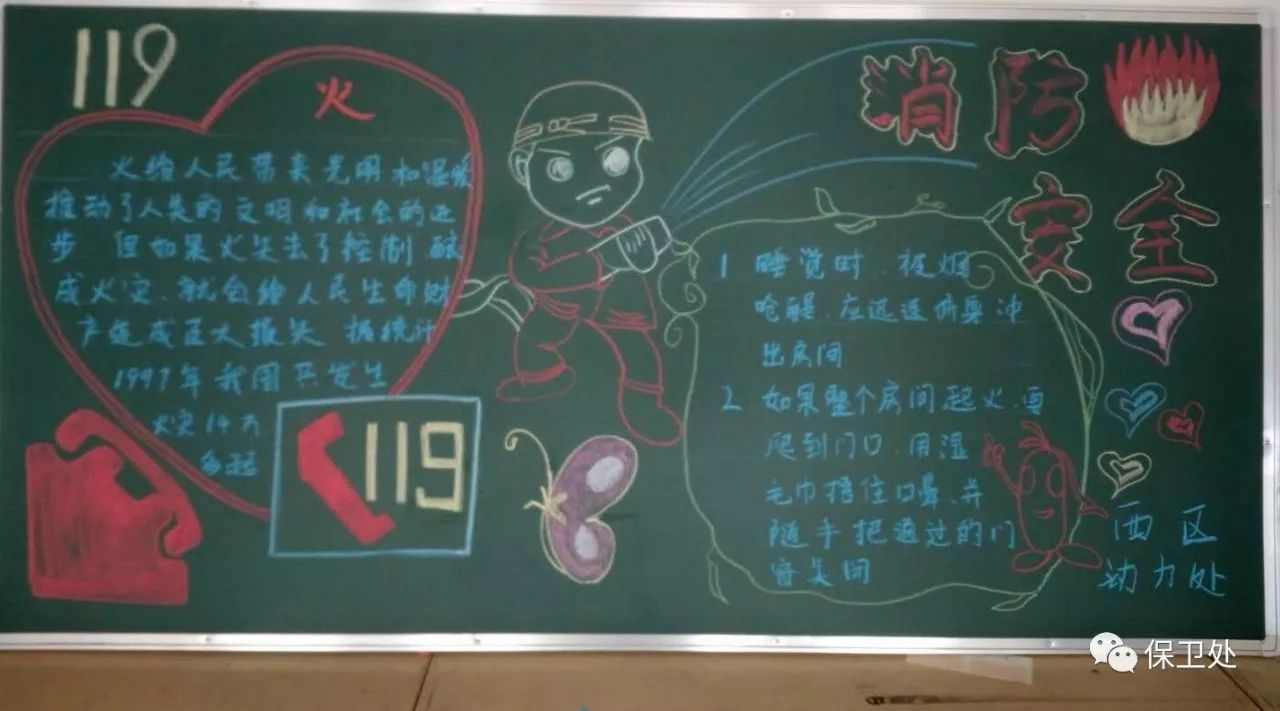 119
火
火给人民带来光明和温暖
推动了人类的文明和社会的进
步 但如果火失去了控制 酿
成火灾、就会给人民生命财
产造成巨大损失 据统计
1997年我国共发生
火灾14万
多起
119
消防
安全
1 睡觉时、被烟
呛醒、应迅速俯身冲
出房间
2、如果整个房间起火、要
爬到门口、用湿
毛巾捂住口鼻、并
随手把通过的门
窗关闭
西区
动力处
保卫处